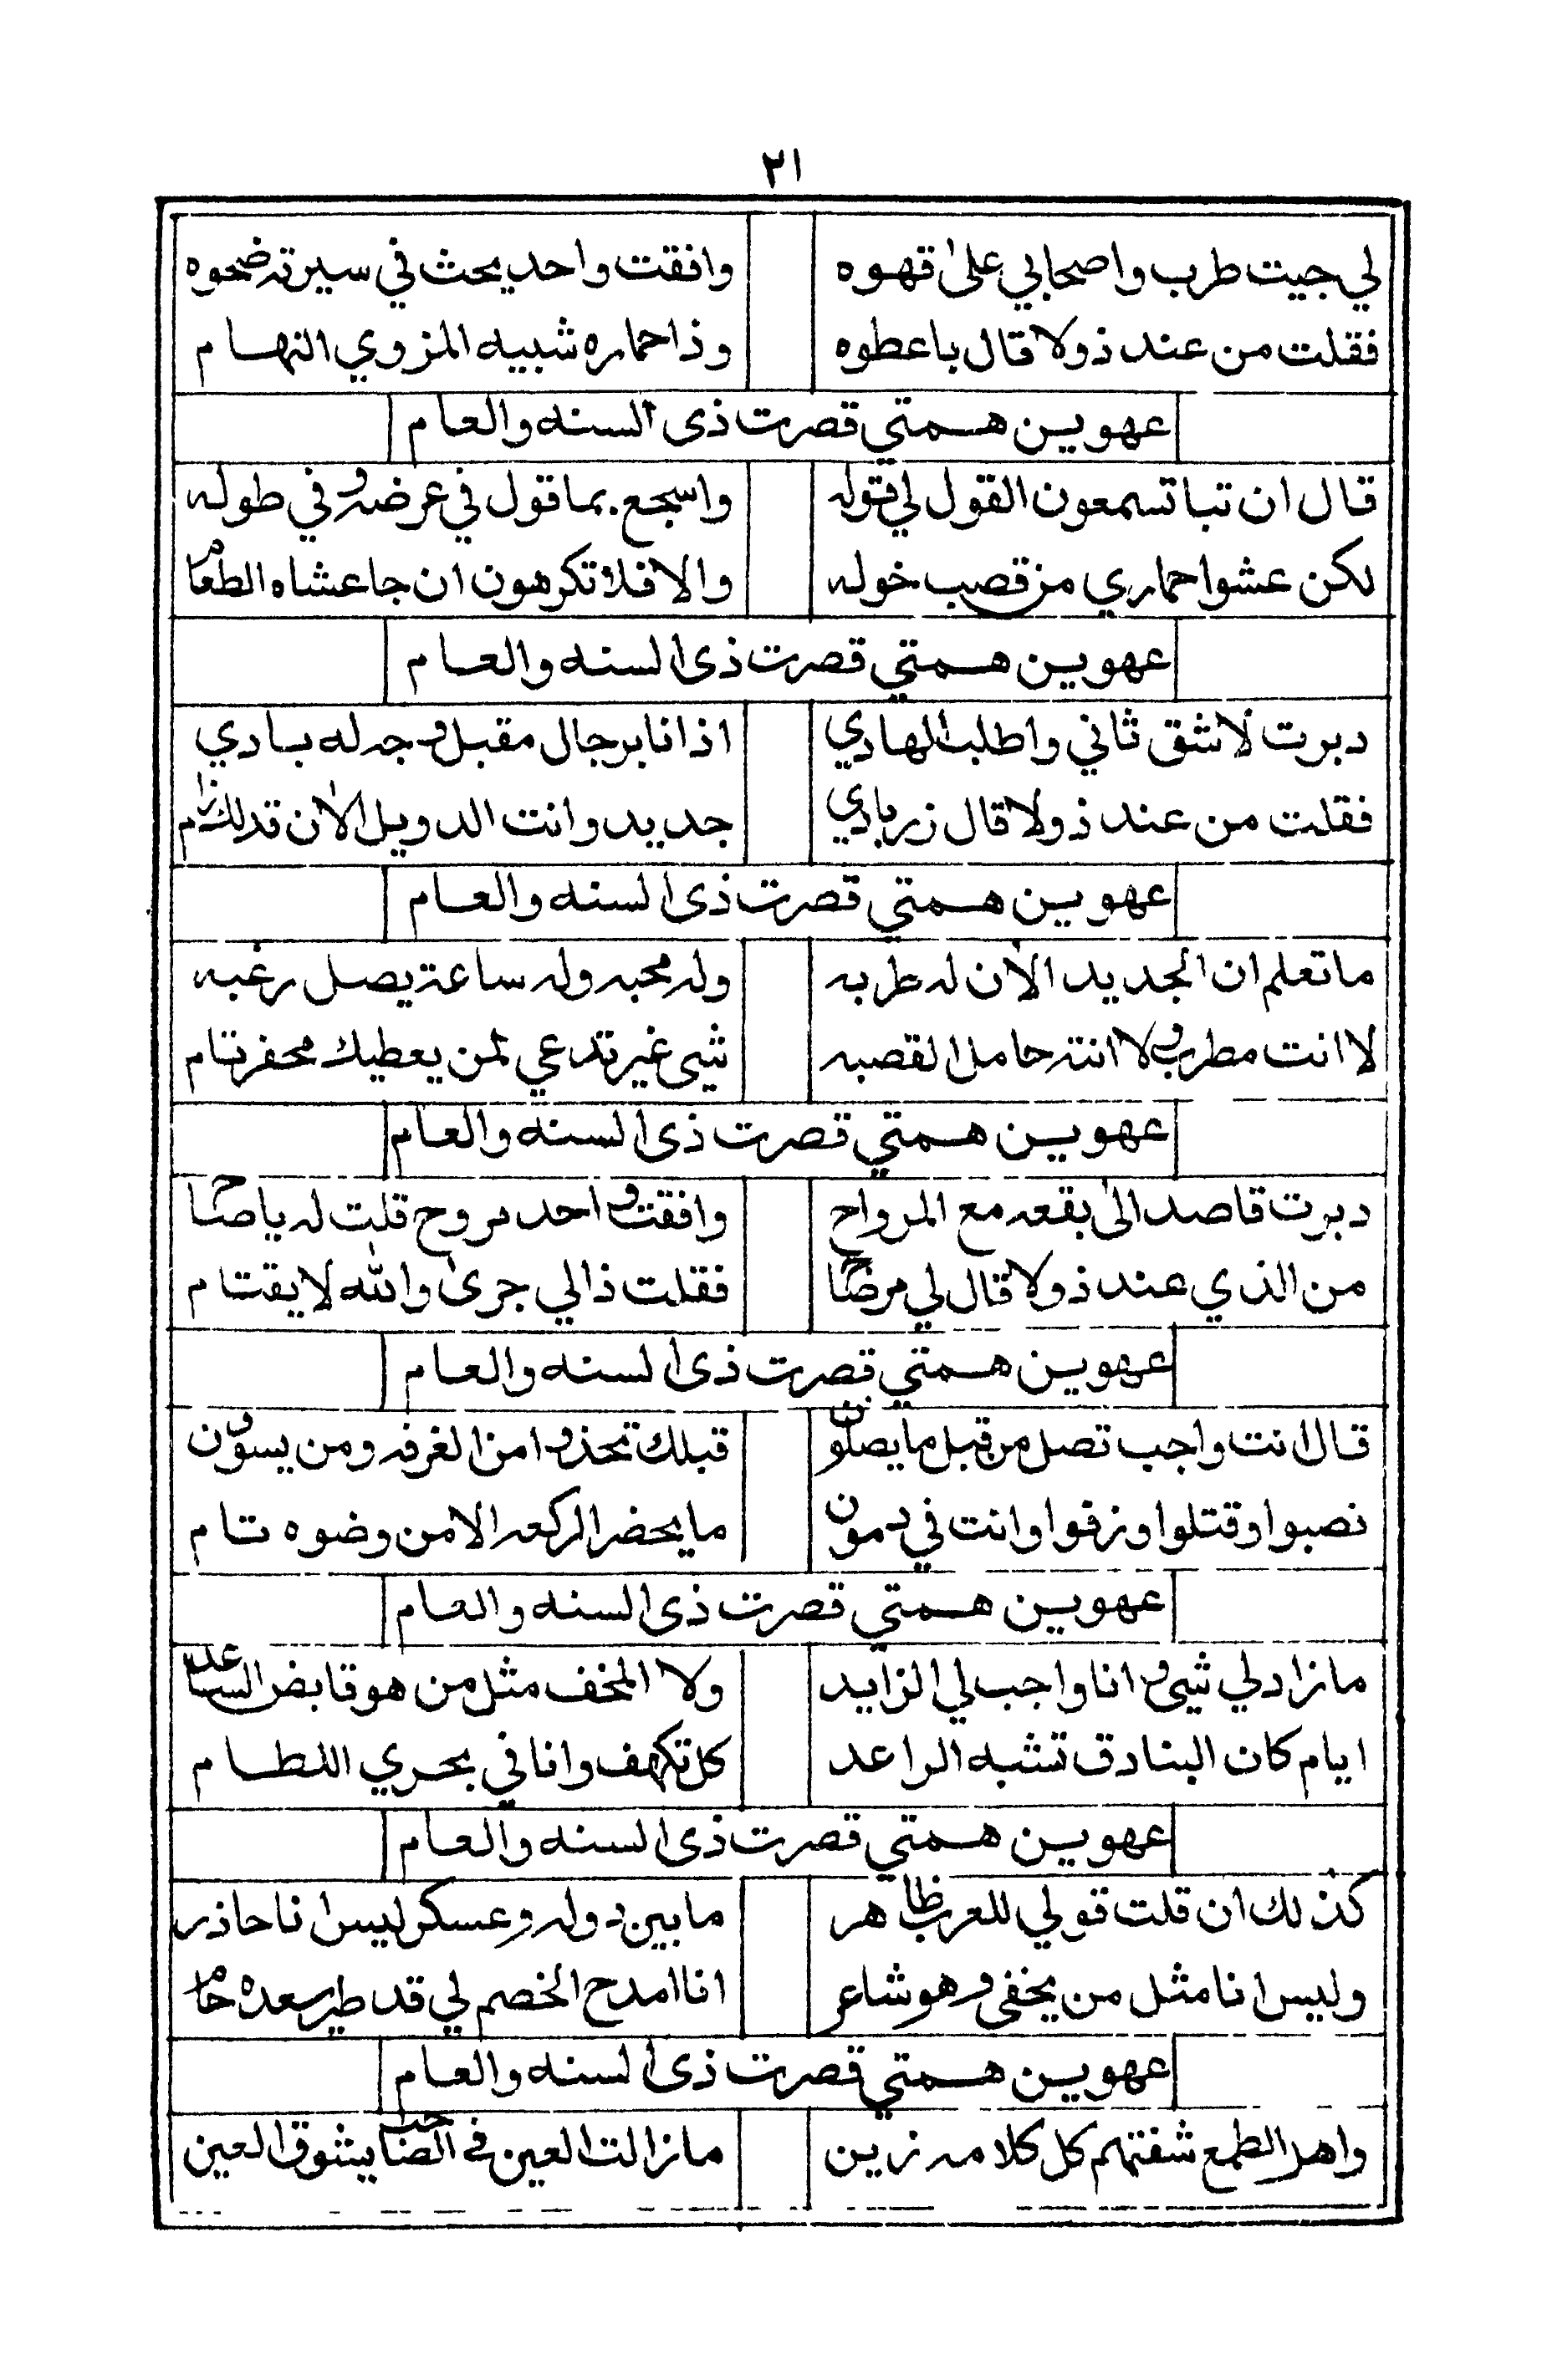 ٢١
لي جيت طرب واصحابي على قهوه وافقت واحد يحث في سيرته ضحوه
فقلت من عند ذولا قال باعطوه وذا حماره شبيه المزوي النهام
عهوين همتي قصرت ذى السنه والعام
قال ان تبا تسمعون القول لي قوله واسجع بما قول في عرضه وفي طوله
لكن عشوا حماري من قصب خوله والا فلا تكرهون ان جا عشاه الطعام
عهوين همتي قصرت ذى السنه والعام
دبرت لاشق ثاني واطلب الهادي اذا نا برجال مقبل وجه له بادي
فقلت من عند ذولا قال زربادي جديد وانت الدويل الان قد لك زام
عهوين همتي قصرت ذى السنه والعام
ما تعلم ان الجديد الان له طربه وله محبه وله ساعة يصل رغبه
لا انت مطرب ولا انته حامل القصبه شي غير تدعي لمن يعطيك محفر تام
عهوين همتي قصرت ذى السنه والعام
دبرت قاصد الى بقعه مع المرواح وافقت واحد مروح قلت له يا صاح
من الذي عند ذولا قال لي مرضاح فقلت ذا لي جرى والله لا يقتام
عهوين همتي قصرت ذى السنه والعام
قال انت واجب تصل من قبل ما يصلون قبلك تحذوا من الغرفه ومن يسوون
نصبوا وقتلوا وزفوا وانت في دمون ما يحضر الركعه الا من وضوه تام
عهوين همتي قصرت ذى السنه والعام
ما زاد لي شي وانا واجب لي الزايد ولا المخف مثل من هو قابض الساعد
ايام كان البنادق تشبه الراعد كل تكهف وانا في بحري اللطام
عهوين همتي قصرت ذى السنه والعام
كذلك ان قلت قولي للعرب ظاهر ما بين دوله وعسكر ليس انا حاذر
وليس انا مثل من يخفي وهو شاعر انا امدح الخصم لي قد طير سعده حام
عهوين همتي قصرت ذى السنه والعام
واهل الطمع شفتهم كل كلامه زين ما زالت العين في الصاحب يشوق العين